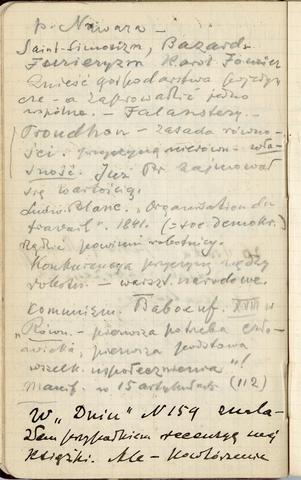 p. Nawara –
Saint-Simonizm, Bazard.
Fourieryzm Karol Fourier
Znieść gospodarstwa pojedyn
cze – a zaprowadzić jedno
wspólne. – Falanstery. –
Proudhon – zasada równo-
ści. przyczyną nierówn. – wła-
sność. Już Pr zajmował
się wartością.
Ludw. Blanc. „Organisation du
travail". 1841. (= soc demokr.)
rządzić powinni robotnicy.
Konkurencya przyczyn nędzy
robotn. – warszt. narodowe.
Kommunizm. Baboeuf. XVIII w
„Równ. – pierwsza potrzeba czło-
wieka, pierwsza podstawa
wszelk. uspołecznienia"!
Manif. w 15 artykułach (112)
W „Dniu" N 159 znala-
złam przypadkiem recenzyę mej
książki. Ale – powtórzenie